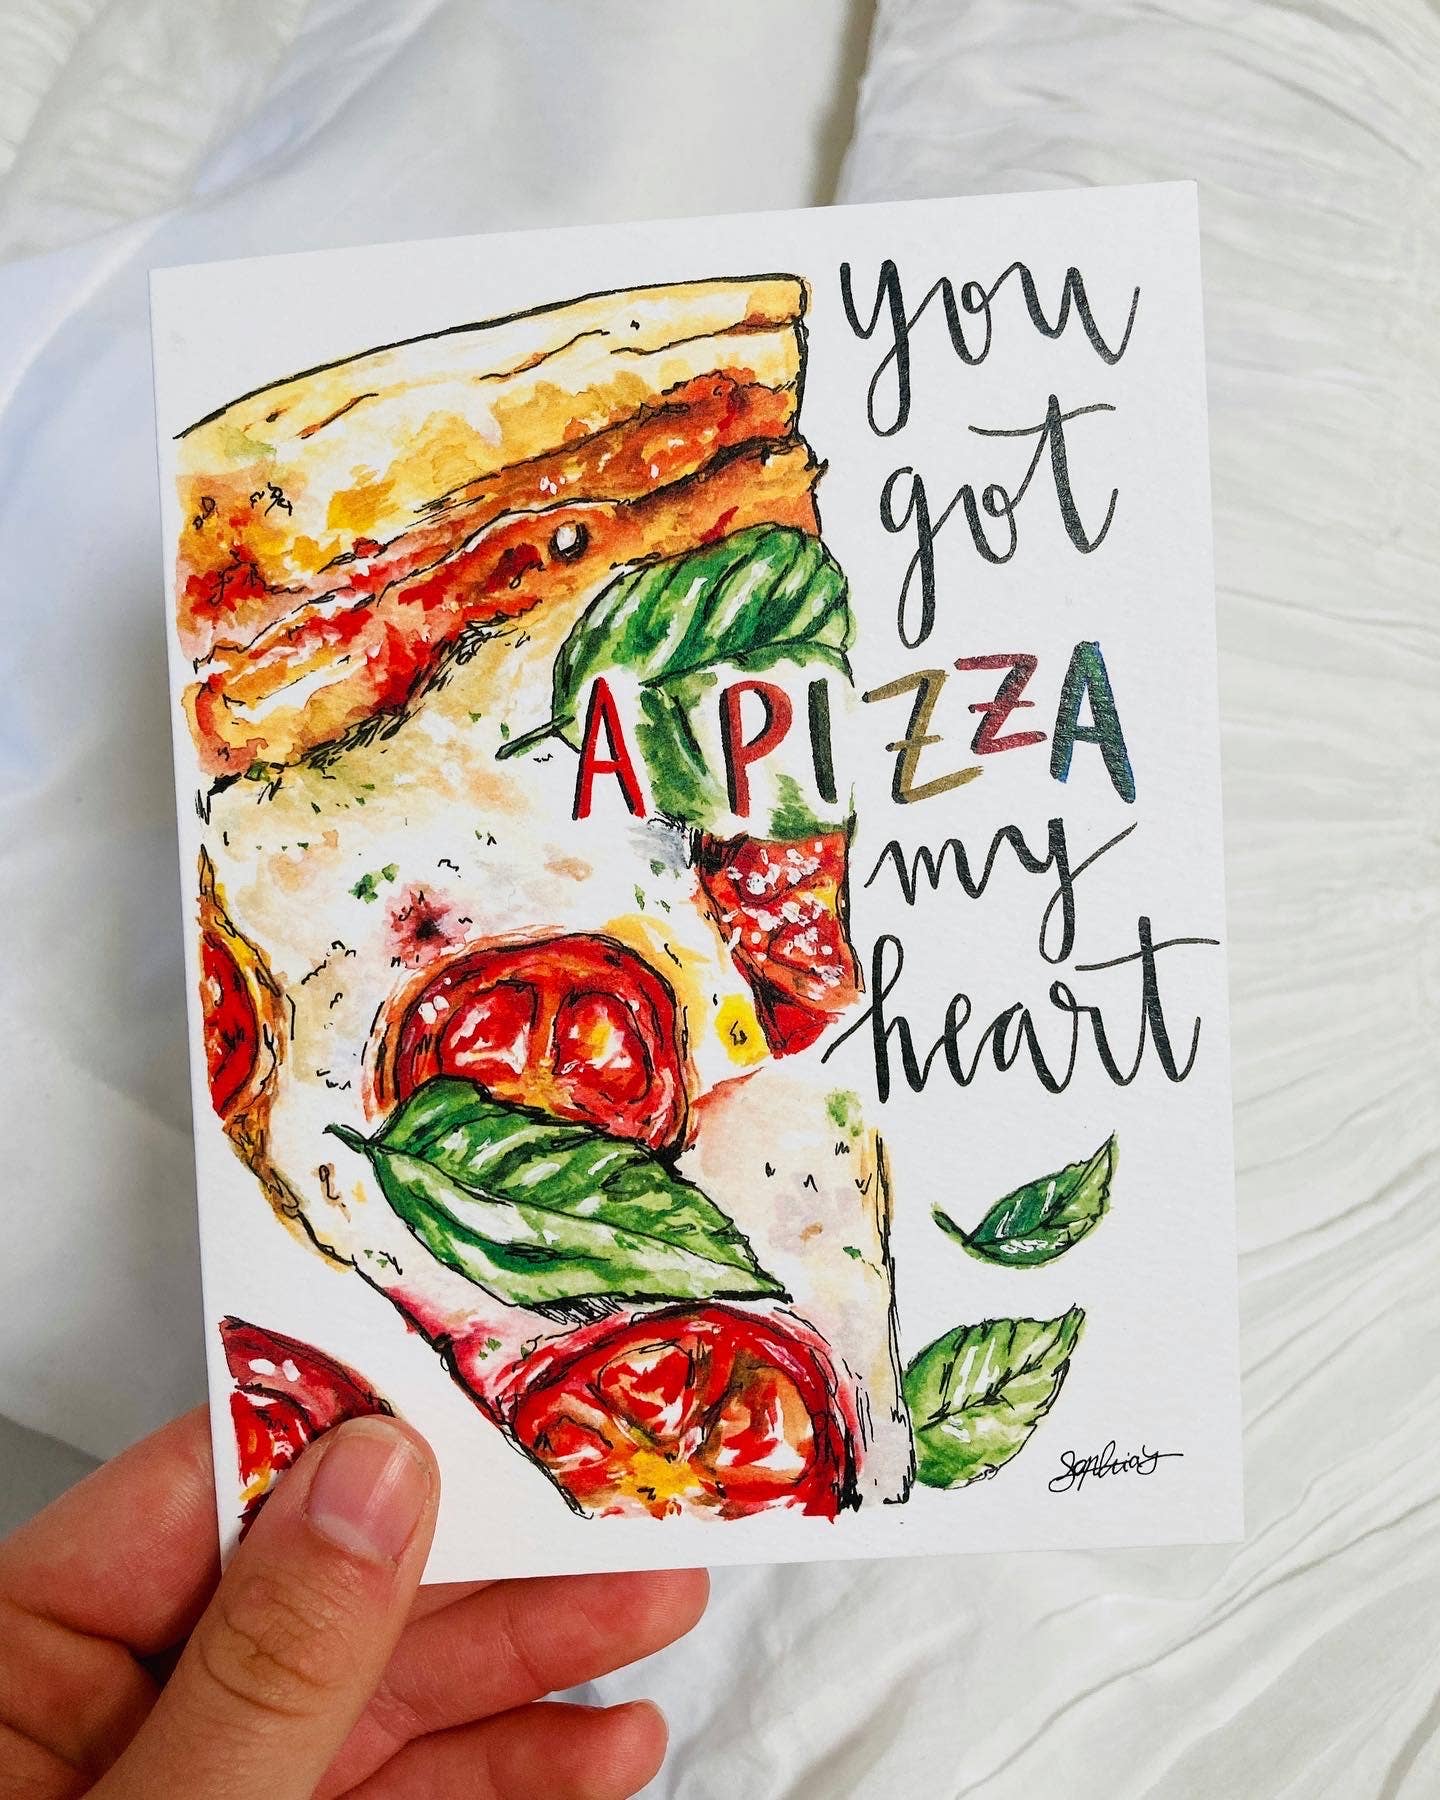 you
got
A PIZZA
my
heart